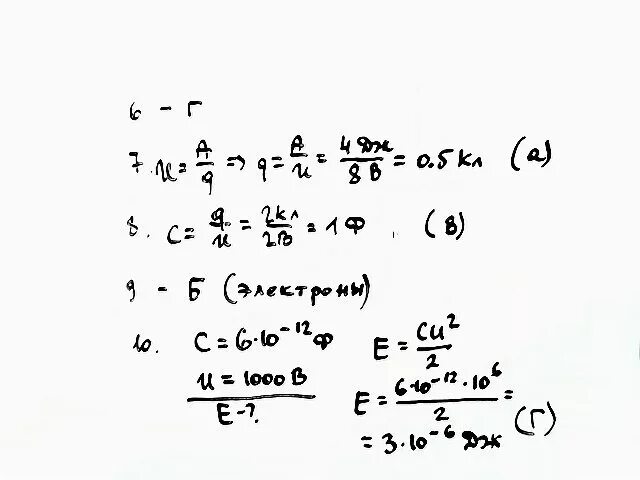 6 - Г
7. U = A/q => q = A/U = 4 Дж/8 В = 0.5 Кл (а)
8. C = q/U = 2 Кл/2 В = 1 Ф (В)
9 - Б (электроны)
10. C = 6·10⁻¹² Ф E = CU²/2
U = 1000 В E = 6·10⁻¹²·10⁶/2 =
E - ? = 3·10⁻⁶ Дж (Г)